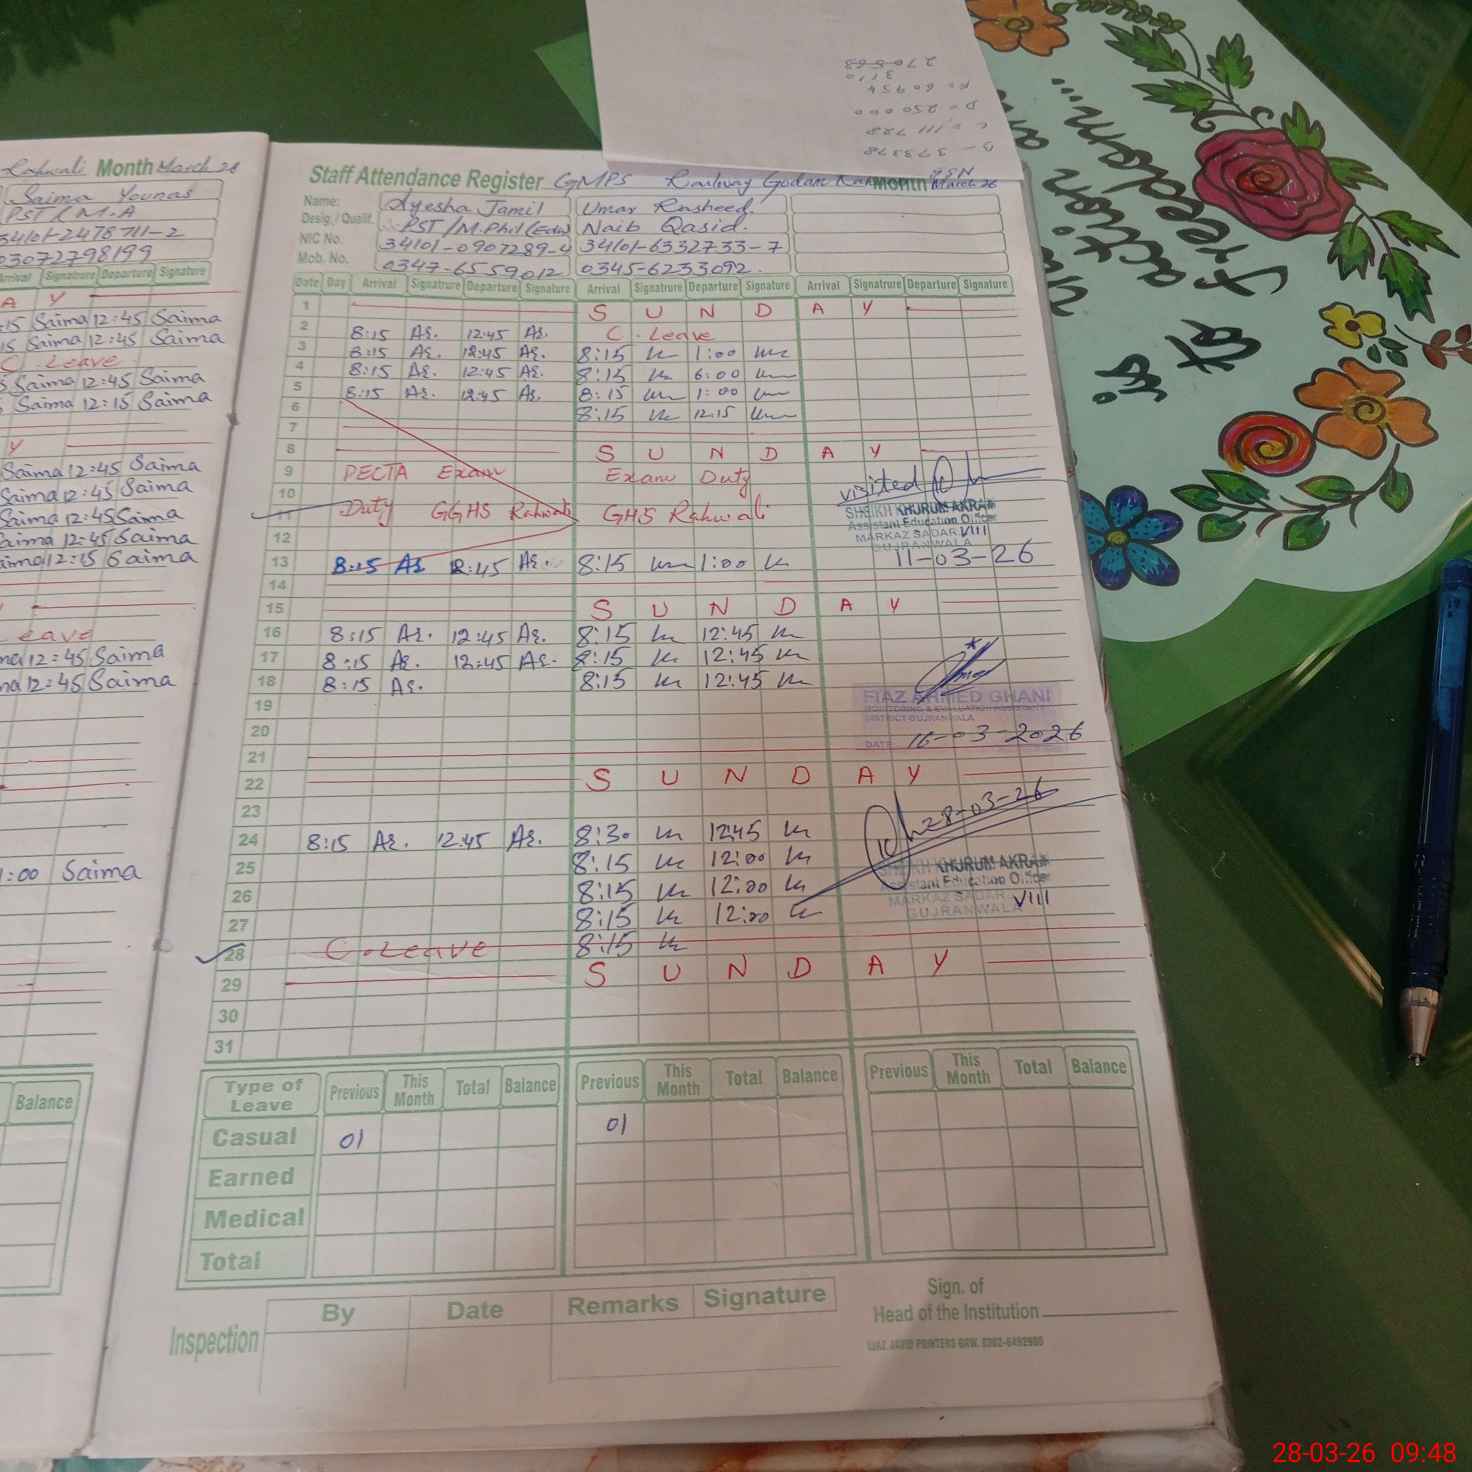 Rahwali Month March 26
Saima Younas
PST / M.A
34101-2478711-2
03072798199
Arrival Signatrure Departure Signature
A Y
:15 Saima 12:45 Saima
15 Saima 12:45 Saima
C Leave
5 Saima 12:45 Saima
Saima 12:15 Saima
Y
Saima 12:45 Saima
Saima 12:45 Saima
Saima 12:45 Saima
aima 12:45 Saima
aima 12:15 Saima
eave
ma 12:45 Saima
ma 12:45 Saima
1:00 Saima
Balance
Staff Attendance Register GMPS Railway Godam Month March 26
Name: Ayesha Jamil Umar Rasheed
Desig./ Qualif. PST /M.Phil (Edu) Naib Qasid.
NIC No. 34101-0907289-4 34101-6332733-7
Mob. No. 0347-6559012 0345-6233092.
Date Day Arrival Signatrure Departure Signature Arrival Signatrure Departure Signature Arrival Signatrure Departure Signature
1 S U N D A Y
2 8:15 As. 12:45 As. C. Leave
3 8:15 As. 12:45 As. 8:15 1:00
4 8:15 As. 12:45 As. 8:15 6:00
5 8:15 As. 12:45 As. 8:15 1:00
6 8:15 12:15
7
8 S U N D A Y
9 PECTA Exam Exam Duty
10
11 Duty GGHS Rahwali GHS Rahwali
12
13 8:15 As 12:45 As. 8:15 1:00
14
15 S U N D A Y
16 8:15 As. 12:45 As. 8:15 12:45
17 8:15 As. 12:45 As. 8:15 12:45
18 8:15 As. 8:15 12:45
19
20
21
22 S U N D A Y
23
24 8:15 As. 12:45 As. 8:30 12:45
25 8:15 12:00
26 8:15 12:00
27 8:15 12:00
28 C. Leave 8:15
29 S U N D A Y
30
31
visited
SHEIKH KHURUM AKRAM
Assistant Education Officer
MARKAZ SADAR VIII
GUJRANWALA
11-03-26
FIAZ AHMED GHANI
MONITORING & EVALUATION ASSISTANT
DISTRICT GUJRANWALA
DATE 16-03-2026
28-03-26
SHEIKH KHURUM AKRAM
Assistant Education Officer
MARKAZ SADAR VIII
GUJRANWALA
Type of Leave Previous This Month Total Balance Previous This Month Total Balance Previous This Month Total Balance
Casual 01 01
Earned
Medical
Total
Inspection By Date Remarks Signature
Sign. of
Head of the Institution
IJAZ JAVID PRINTERS GRW. 0302-6492900
270568
3110
Ro 60954
Do 250 000
C 0,111 722
B - 373378
action
freedom...
to
is
28-03-26 09:48